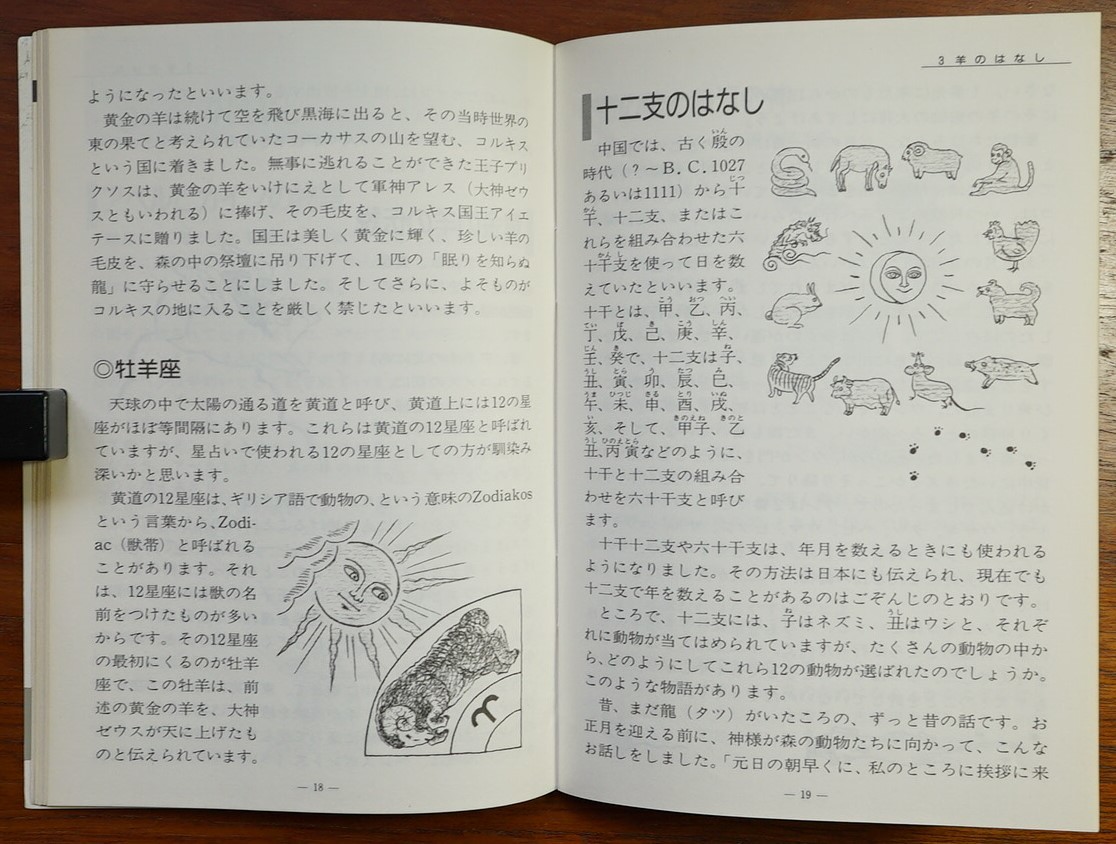 ようになったといいます。
黄金の羊は続けて空を飛び黒海に出ると、その当時世界の
東の果てと考えられていたコーカサスの山を望む、コルキス
という国に着きました。無事に逃れることができた王子プリ
クソスは、黄金の羊をいけにえとして軍神アレス（大神ゼウ
スともいわれる）に捧げ、その毛皮を、コルキス国王アイエ
テースに贈りました。国王は美しく黄金に輝く、珍しい羊の
毛皮を、森の中の祭壇に吊り下げて、1匹の「眠りを知らぬ
龍」に守らせることにしました。そしてさらに、よそものが
コルキスの地に入ることを厳しく禁じたといいます。
◎牡羊座
天球の中で太陽の通る道を黄道と呼び、黄道上には12の星
座がほぼ等間隔にあります。これらは黄道の12星座と呼ばれ
ていますが、星占いで使われる12の星座としての方が馴染み
深いかと思います。
黄道の12星座は、ギリシア語で動物の、という意味のZodiakos
という言葉から、Zodi-
ac（獣帯）と呼ばれる
ことがあります。それ
は、12星座には獣の名
前をつけたものが多い
からです。その12星座
の最初にくるのが牡羊
座で、この牡羊は、前
述の黄金の羊を、大神
ゼウスが天に上げたも
のと伝えられています。
— 18 —
3 羊のはなし
十二支のはなし
中国では、古く殷の
時代（？～B.C.1027
あるいは1111）から十
干、十二支、またはこ
れらを組み合わせた六
十干支を使って日を数
えていたといいます。
十干とは、甲、乙、丙、
丁、戊、己、庚、辛、
壬、癸で、十二支は子、
丑、寅、卯、辰、巳、
午、未、申、酉、戌、
亥、そして、甲子、乙
丑、丙寅などのように、
十干と十二支の組み合
わせを六十干支と呼び
ます。
十干十二支や六十干支は、年月を数えるときにも使われる
ようになりました。その方法は日本にも伝えられ、現在でも
十二支で年を数えることがあるのはごぞんじのとおりです。
ところで、十二支には、子はネズミ、丑はウシと、それぞ
れに動物が当てはめられていますが、たくさんの動物の中か
ら、どのようにしてこれら12の動物が選ばれたのでしょうか。
このような物語があります。
昔、まだ龍（タツ）がいたころの、ずっと昔の話です。お
正月を迎える前に、神様が森の動物たちに向かって、こんな
お話しをしました。「元日の朝早くに、私のところに挨拶に来
— 19 —